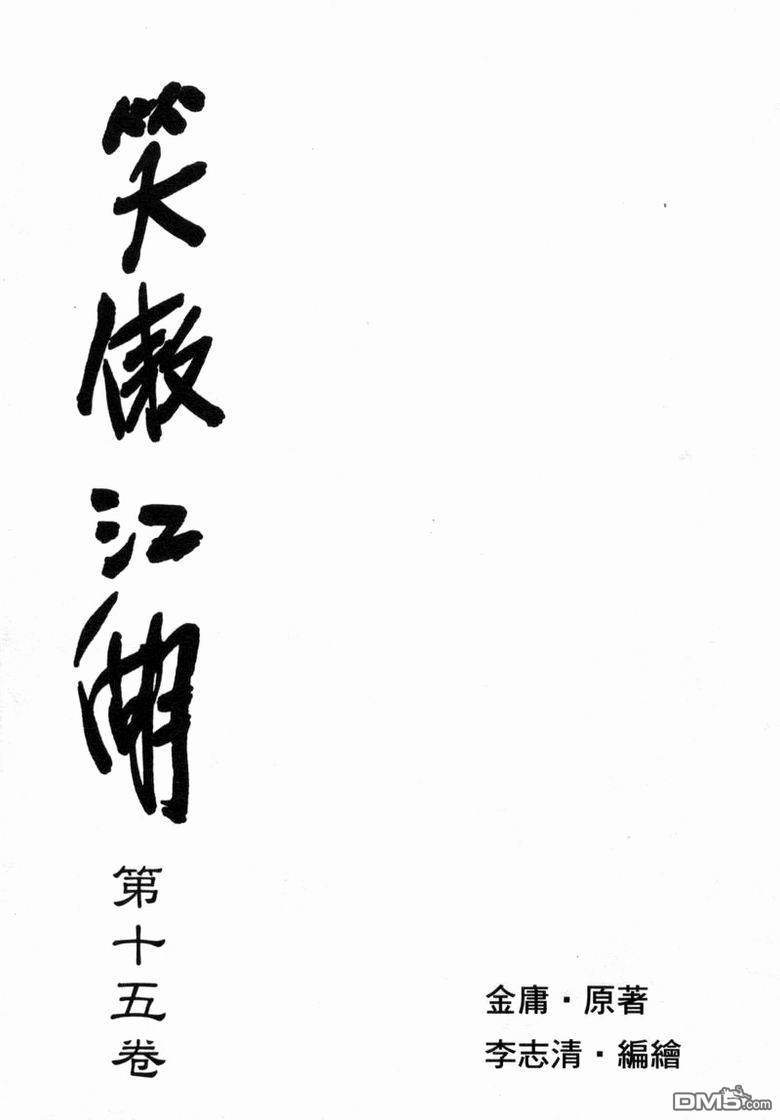 笑傲江湖
第十五卷
金庸·原著
李志清·編繪
DM5.com